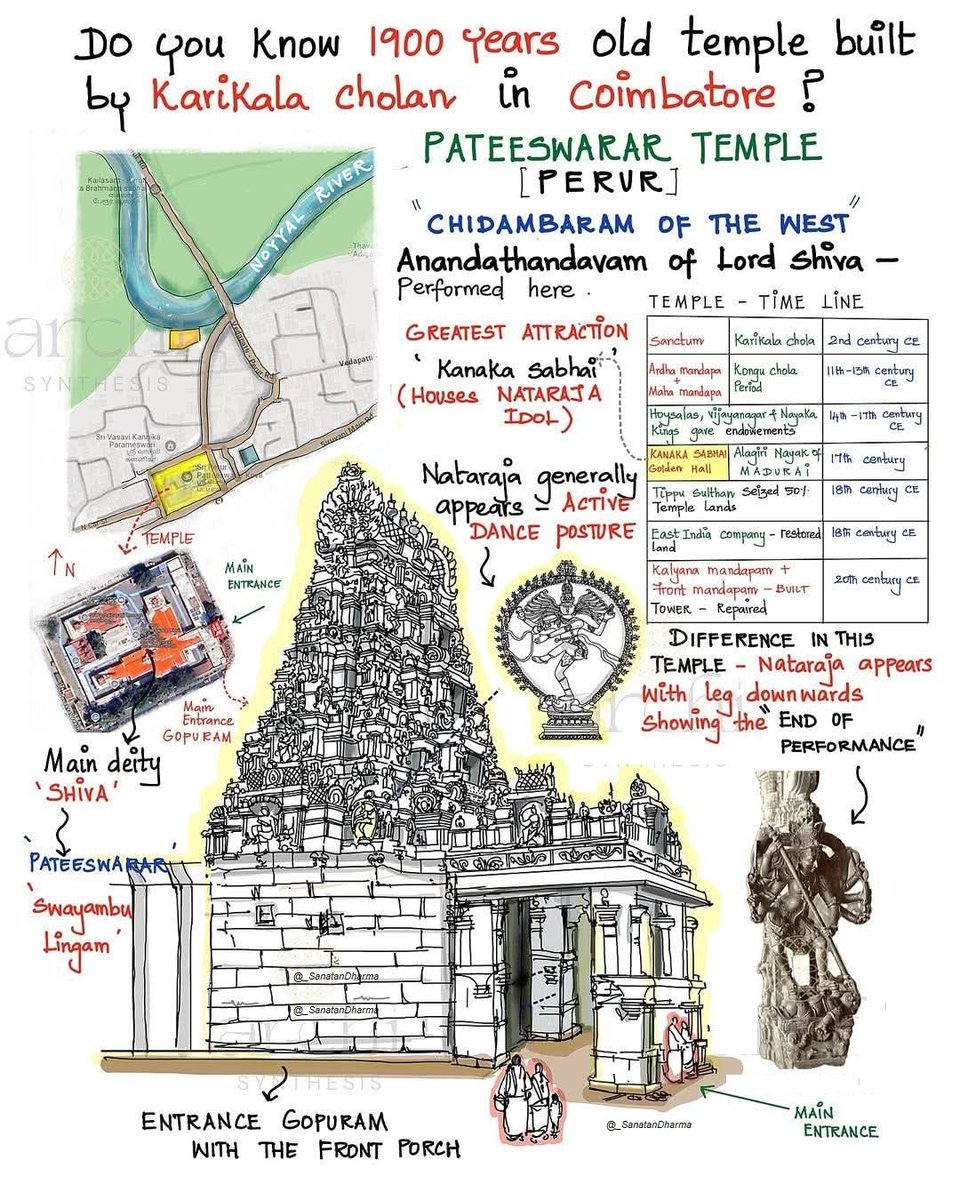 Do you know 1900 years old temple built
by Karikala cholan in Coimbatore ?
PATEESWARAR TEMPLE
[PERUR]
"CHIDAMBARAM OF THE WEST"
Anandathandavam of Lord Shiva –
Performed here .
NOYYAL RIVER
Vedapatti
Siruvani Main Rd
Sri Vasavi Kannika
Parameswari
TEMPLE
N
GREATEST ATTRACTION
'Kanaka sabhai'
(Houses NATARAJA
IDOL)
TEMPLE – TIME LINE
Sanctum Karikala chola 2nd century CE
Ardha mandapa + Maha mandapa Kongu chola Period 11th-13th century CE
Hoysalas, vijayanagar & Nayaka Kings gave endowements 14th-17th century CE
KANAKA SABHAI Golden Hall Alagiri Nayak of MADURAI 17th century
Tippu Sulthan Seized 50% Temple lands 18th century CE
East India company - restored land 18th century CE
Kalyana mandapam + front mandapam – BUILT
TOWER – Repaired 20th century CE
Nataraja generally
appears – ACTIVE
DANCE POSTURE
DIFFERENCE IN THIS
TEMPLE – Nataraja appears
with leg downwards
showing the "END OF
PERFORMANCE"
MAIN
ENTRANCE
Main
Entrance
GOPURAM
Main deity
'SHIVA'
'PATEESWARAR'
'Swayambu
Lingam'
@_SanatanDharma
@_SanatanDharma
SYNTHESIS
SYNTHESIS
SYNTHESIS
ENTRANCE GOPURAM
WITH THE FRONT PORCH
@_SanatanDharma
MAIN
ENTRANCE